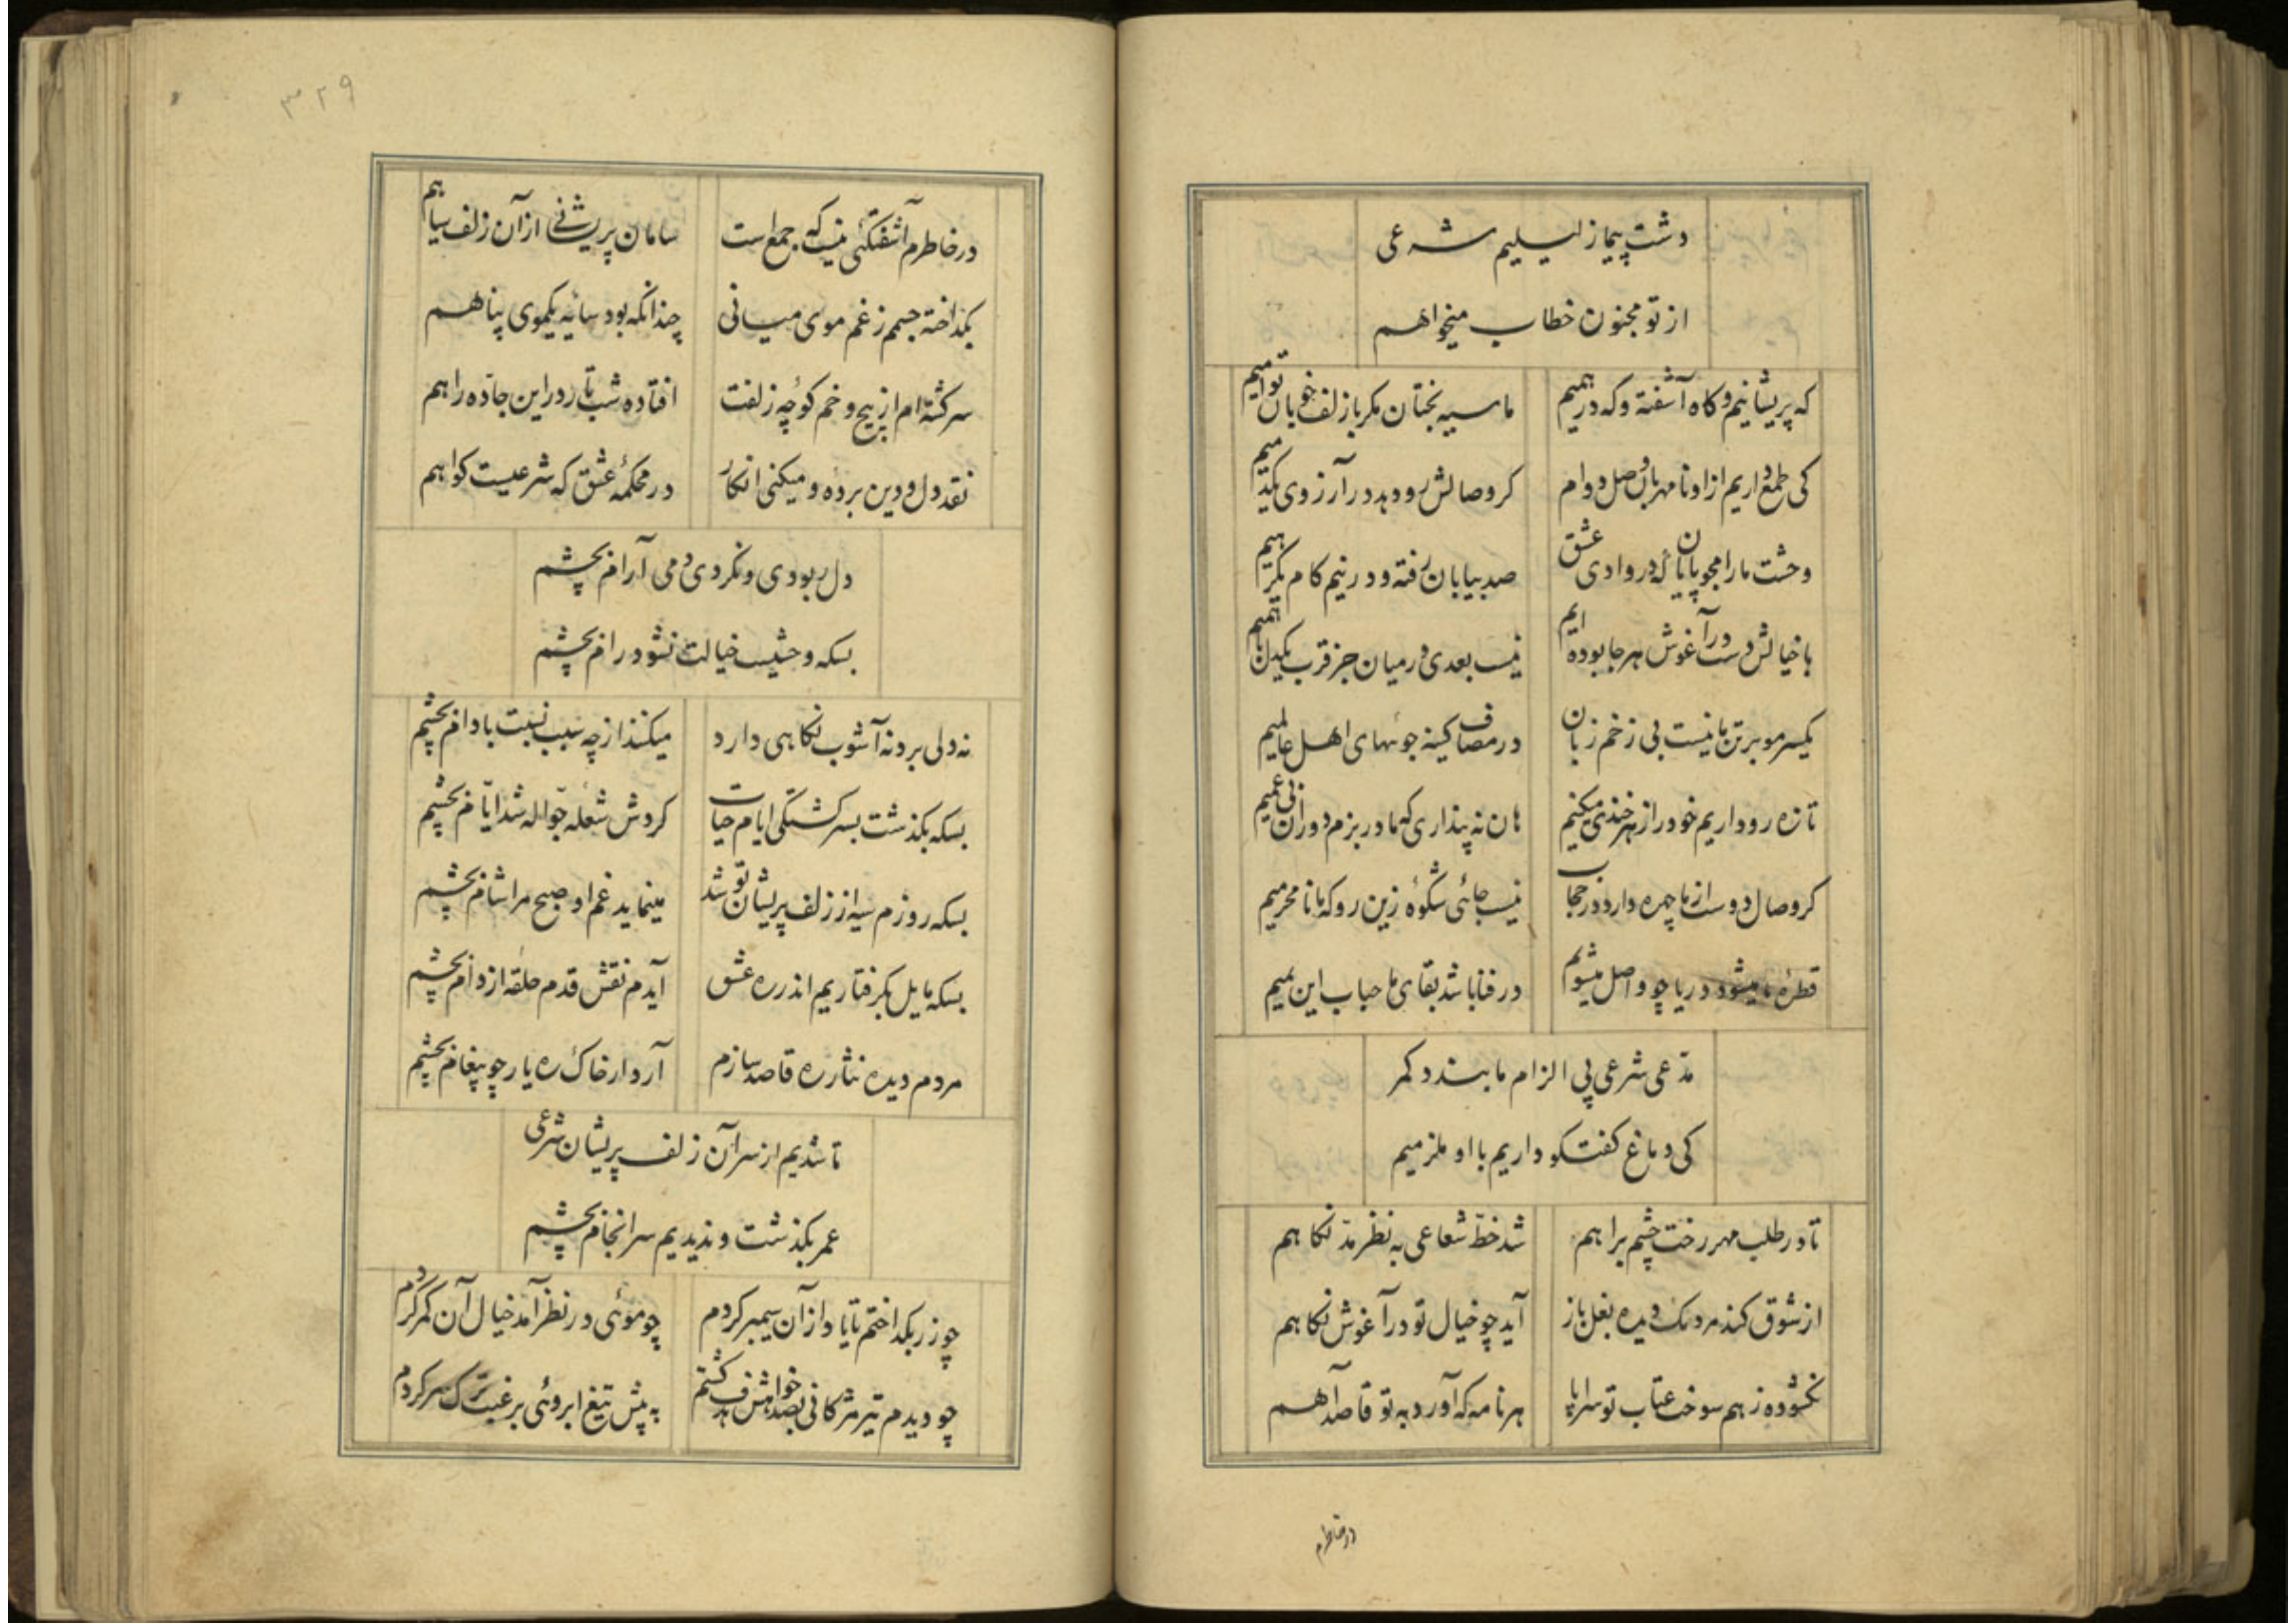 دشت پیما ز لیلیم شرعی
از تو مجنون خطاب میخواهم
که پریشانیم و کاه آشفته و که درهمیم ما سیه بختان مکر با زلف خوبان توامیم
کی طمع داریم از او نامهربان وصل دوام کر وصالش رو دهد در آرزوی یکدمیم
وحشت ما را مجو پایان که در وادی عشق صد بیابان رفته و در نیم کام یکرهیم
با خیالش دست در آغوش هر جا بوده ایم نیست بعدی در میان جز قرب یکدل باهمیم
یکسر مو بر تن ما نیست بی زخم زبان در مصاف کینه جوئیهای اهل عالمیم
تازه رو داریم خود را زهرخندی میکنیم هان نه پنداری که ما در بزم دوران بی غمیم
کر وصال دوست از ما چهره دارد در حجاب نیست جائی شکوه زین رو که ما نامحرمیم
قطرهٔ ما میشود دریا چو واصل میشویم در فنا باشد بقای ما حباب این یمیم
مدّعی شرعی پی الزام ما بندد کمر
کی دماغ کفتکو داریم با او ملزمیم
تا در طلب مهر رخت چشم براهم شد خطّ شعاعی به نظر مدّ نکاهم
از شوق کند مردمک دیده بغل باز آید چو خیال تو در آغوش نکاهم
نکشوده ز هم سوخت عتاب تو سراپا هر نامه که آورد به تو قاصد آهم
در خاطرم
۳۲۹
در خاطرم آشفتکئی نیست که جمع است سامان پریشانی از آن زلف سیاهم
بکداخته جسمم ز غم موی میانی چندانکه بود سایهٔ یکموی پناهم
سرکشته ام از پیچ و خم کوچهٔ زلفت افتاده شب تار در این جاده راهم
نقد دل و دین برده و میکنی انکار در محکمهٔ عشق که شرعیست کواهم
دل ربودی و نکردی دمی آرام بچشم
بسکه وحشیست خیالت نشود رام بچشم
نه دلی برد نه آشوب نکاهی دارد میکند از چه سبب نسبت بادام بچشم
بسکه بکذشت بسرکشتکی ایام حیات کردش شعله جوّاله شد ایّام بچشم
بسکه روزم سیه از زلف پریشان تو شد مینماید غم او صبح مرا شام بچشم
بسکه مایل بکرفتاریم اندر ره عشق آیدم نقش قدم حلقه از دام بچشم
مردم دیده نثار ره قاصد سازم آرد ار خاک ره یار چو پیغام بچشم
تا شدیم از سر آن زلف پریشان شرعی
عمر بکذشت و ندیدیم سرانجام بچشم
چو زر بکداختم تا یاد از آن سیمبر کردم چو موئی در نظر آمد خیال آن کمر کردم
چو دیدم تیر مژکانی بصد خواهش هدف کشتم به پیش تیغ ابروئی برغبت ترک سر کردم